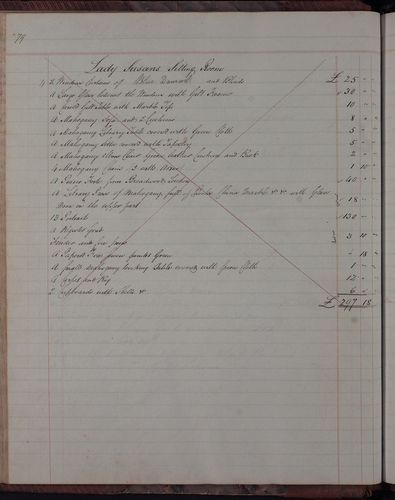 79
Lady Susans Sitting Room
2 Window Curtains of Blue Damask and Blinds £ 25 " "
A Large Glass between the Windows with Gilt Frame 30 " "
A Gilt Table with Marble Top 10 " "
A Mahogany Sofa and 2 Cushions 8 " "
A Mahogany Library Table covered with Green Cloth 5 " "
A Mahogany covered with Tapestry 5 " "
A Mahogany Chair Green Leather Cushion and Back 2 " "
4 Mahogany Chairs 2 with Arms 1 10 "
A Piano Forte from Broadwood London 40 " "
A Library Case of Mahogany full of Books China Marble &c &c with Glass
Doors in the upper part 18 " "
13 Portraits 130 " "
A
Fender and fire irons 3 11 "
A Screen painted Green " 18 "
A Mahogany Table covered with Green Cloth 1 " "
A Carpet and Rug 12 " "
2 Cupboards with Shelves &c 6 " "
£ 297 18